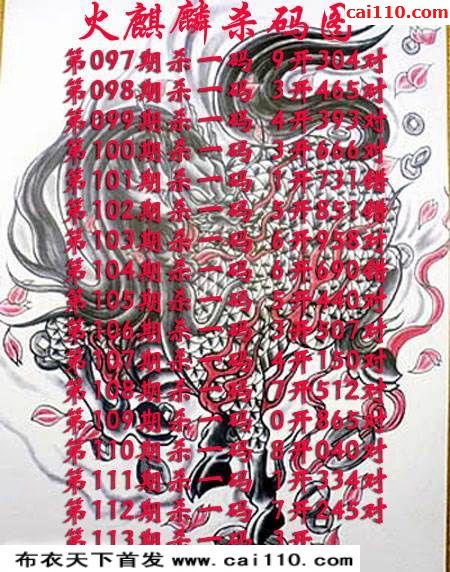 cai110.com
火麒麟杀码图
第097期杀一码 9开304对
第098期杀一码 3开465对
第099期杀一码 4开393对
第100期杀一码 3开666对
第101期杀一码 1开731错
第102期杀一码 5开851错
第103期杀一码 6开958对
第104期杀一码 6开690错
第105期杀一码 5开440对
第106期杀一码 3开507对
第107期杀一码 4开150对
第108期杀一码 7开512对
第109期杀一码 0开865对
第110期杀一码 8开040对
第111期杀一码 1开334对
第112期杀一码 7开245对
第113期杀一码 3开
布衣天下首发 www.cai110.com